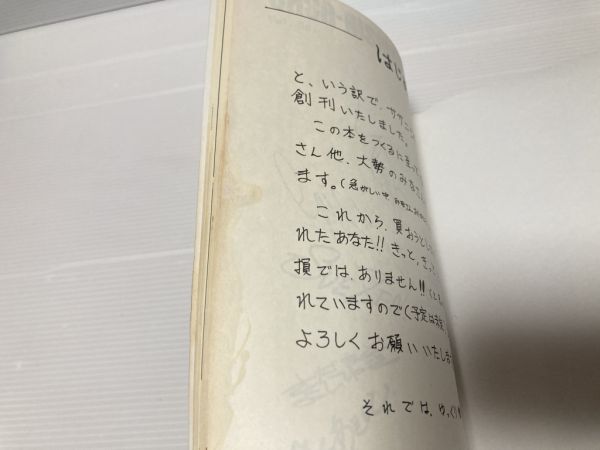 はじ
と、いう訳で、ササニシ
創刊いたしました。
この本をつくるに至って
さん他、大勢のみなさん
ます。(急がしい中
これから、買おうとし
れたあなた!!きっと、きっ
損では、ありません!!
れていますので(予定は未定
よろしくお願いいたしま
それでは、ゆっくり